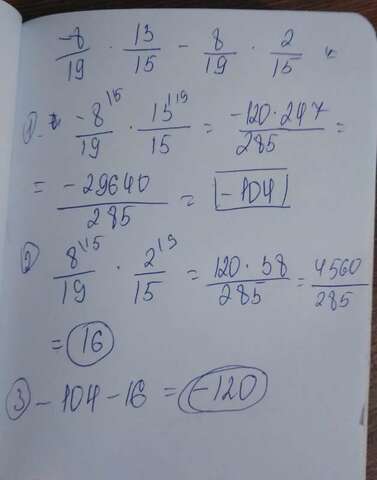 -8/19 · 13/15 - 8/19 · 2/15
1) -8^\15/19 · 13^\19/15 = -120·247/285 =
= -29640/285 = -104
2) 8^\15/19 · 2^\19/15 = 120·38/285 = 4560/285
= 16
3) -104-16 = -120